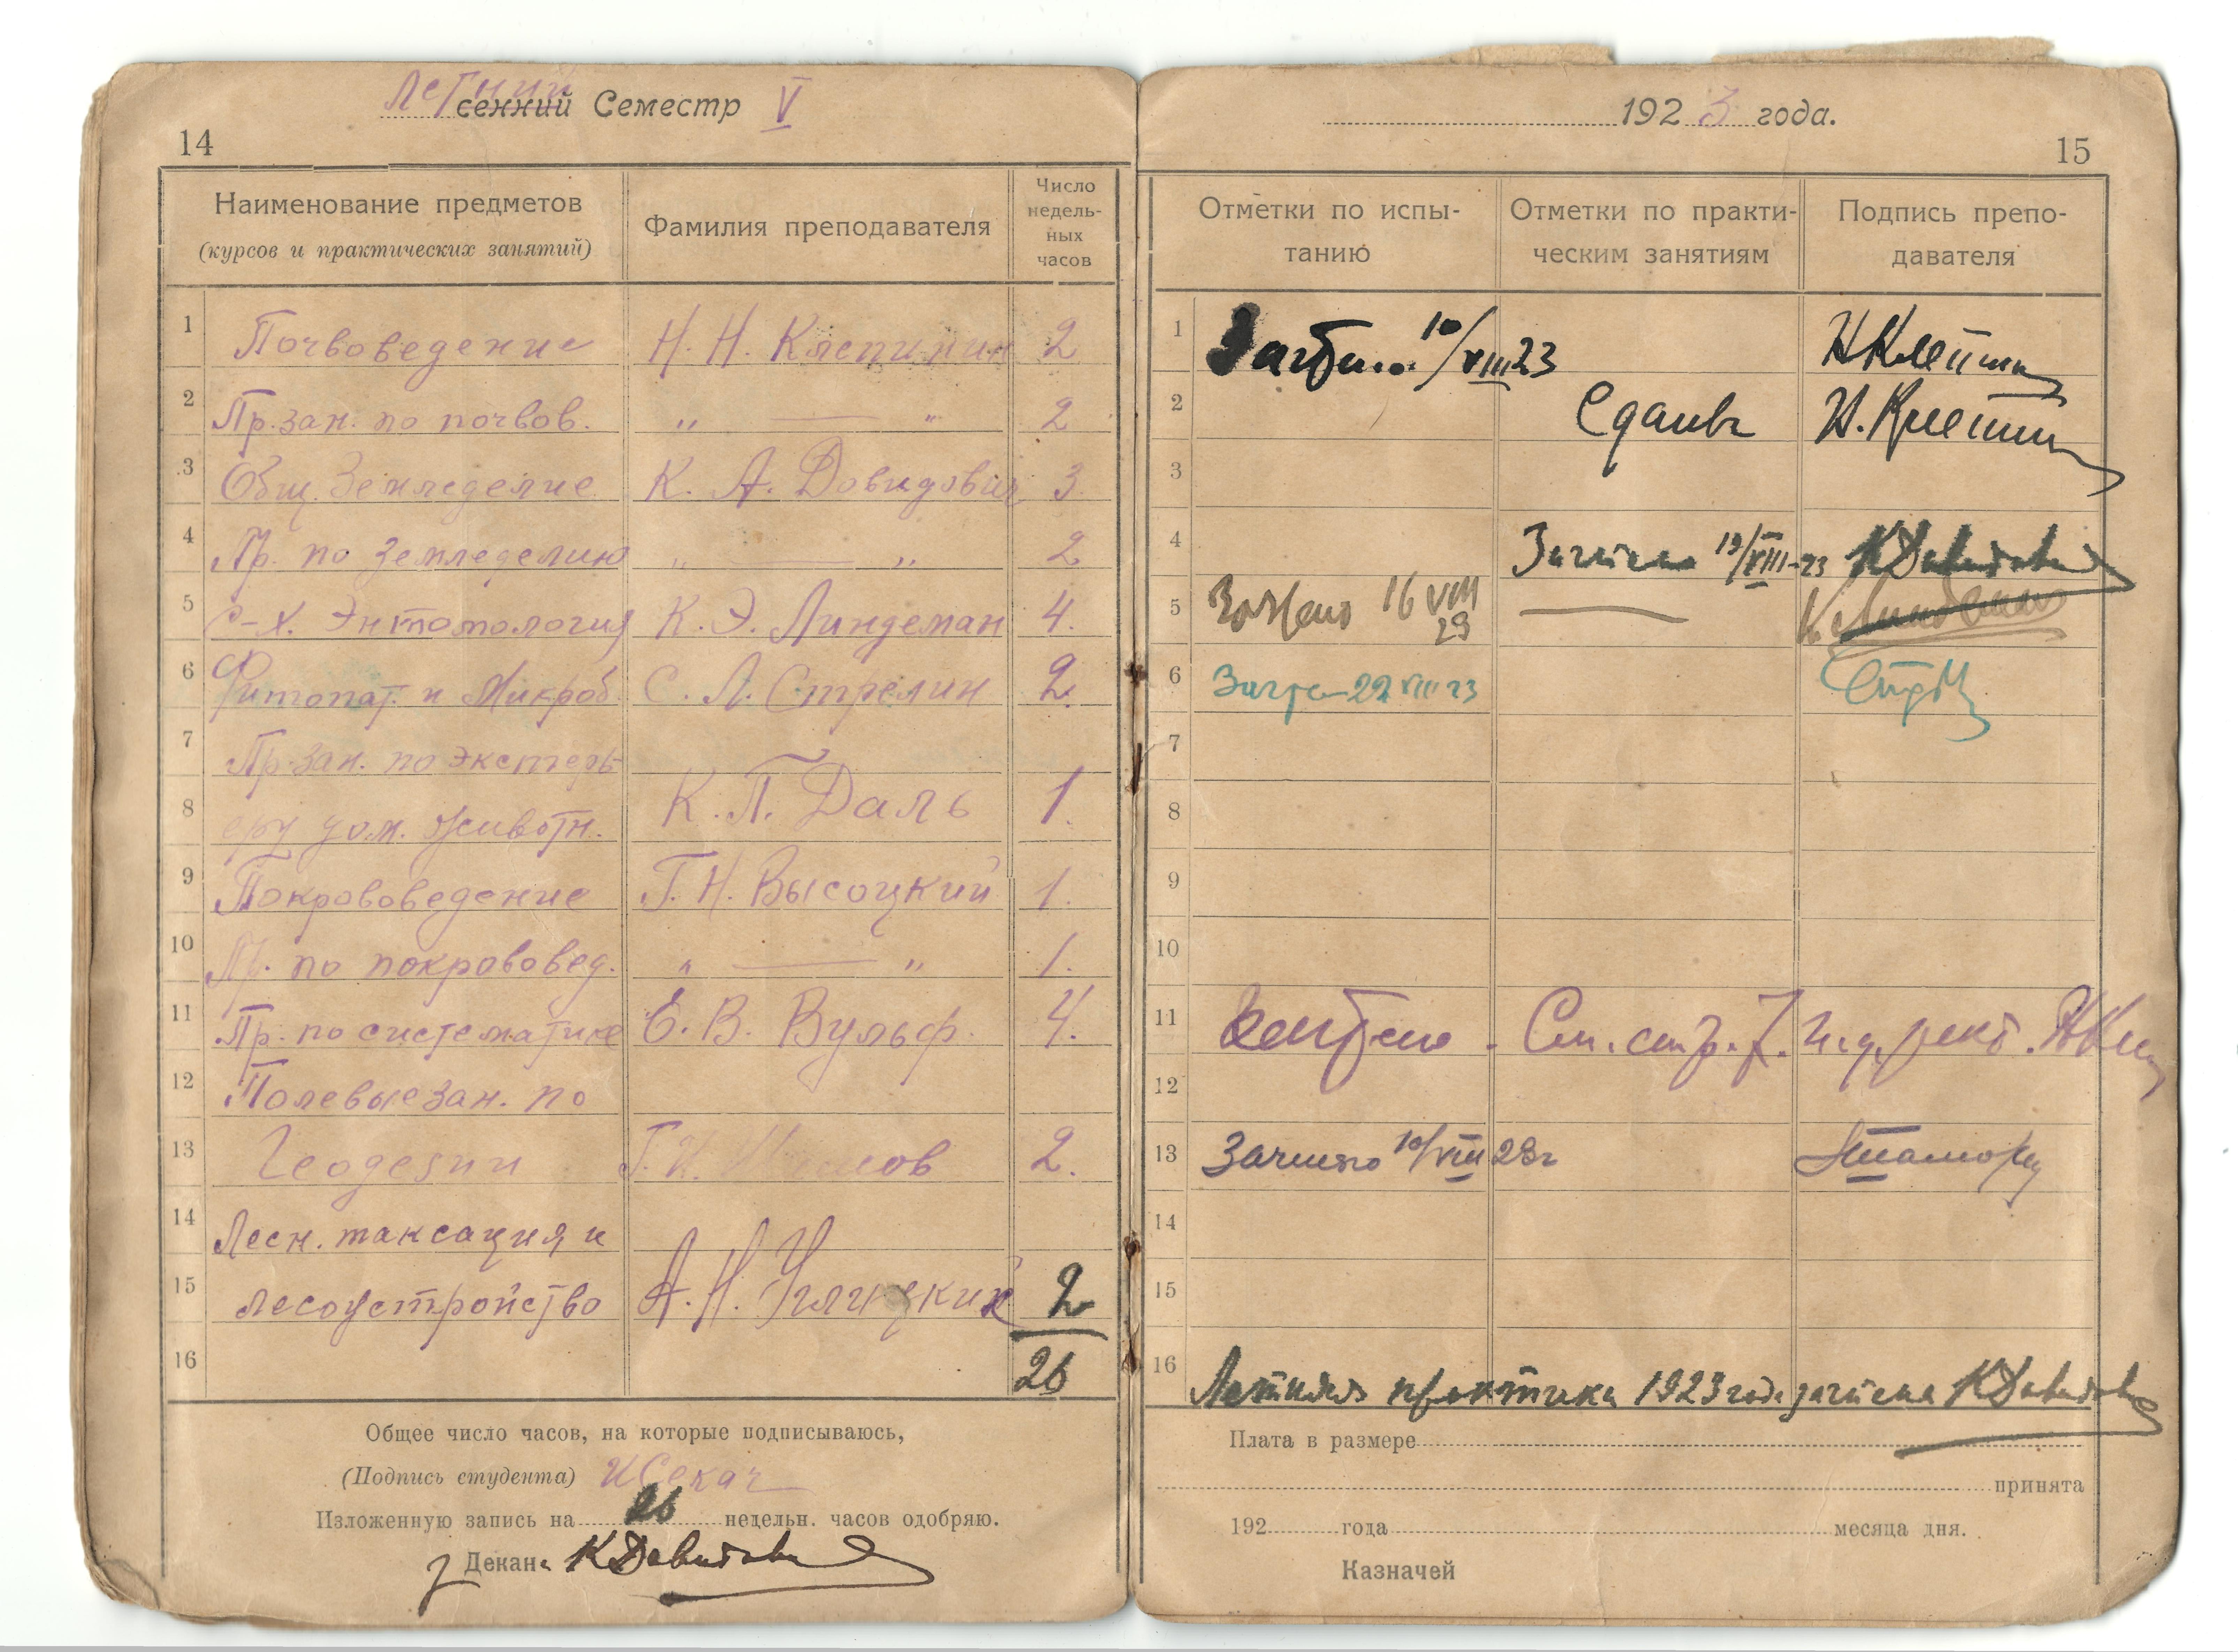 Летний сенний Семестр V
14
Наименование предметов
(курсов и практических занятий)
Фамилия преподавателя
Число недель-ных часов
1 Почвоведение Н. Н. Клепинин 2
2 Пр. зан. по почвов. „ — „ 2
3 Общ. Земледелие К. А. Довидович 3
4 Пр. по Земледелию „ — „ 2
5 С-х. Энтомология К. Э. Линдеман 4.
6 Фитопат. и Микроб. С. Л. Стрелин 2.
7 Пр. зан. по экстерь-
8 еру дом. животн. К. П. Даль 1.
9 Покрововедение Г. Н. Высоцкий 1.
10 Пр. по покрововед. „ — „ 1.
11 Пр. по систематике Е. В. Вульф. 4.
12 Полевые зан. по
13 Геодезии 2.
14 Лесн. таксация и
15 лесоустройство А. Н. Углицкий 2
16 26
Общее число часов, на которые подписываюсь,
(Подпись студента) ИСекач
Изложенную запись на 26 недельн. часов одобряю.
з Декана КДавидович
1923 года.
15
Отметки по испы-танию
Отметки по практи-ческим занятиям
Подпись препо-давателя
1 Зачтено 10/VIII 23 НКлепинин
2 Сдавъ Н. Клепинин
3
4 Зачтено 19/VIII-23 КДавидович
5 Зачтено 16 VIII 23 — К. Линдеман
6 Зачтено 22 VIII 23
7
8
9
10
11 Зачтено. См. стр. 7.
12
13 Зачтено 10/VIII 23г
14
15
16 Летняя практика 1923 года зачтена КДавидович
Плата в размере
принята
192 года месяца дня.
Казначей